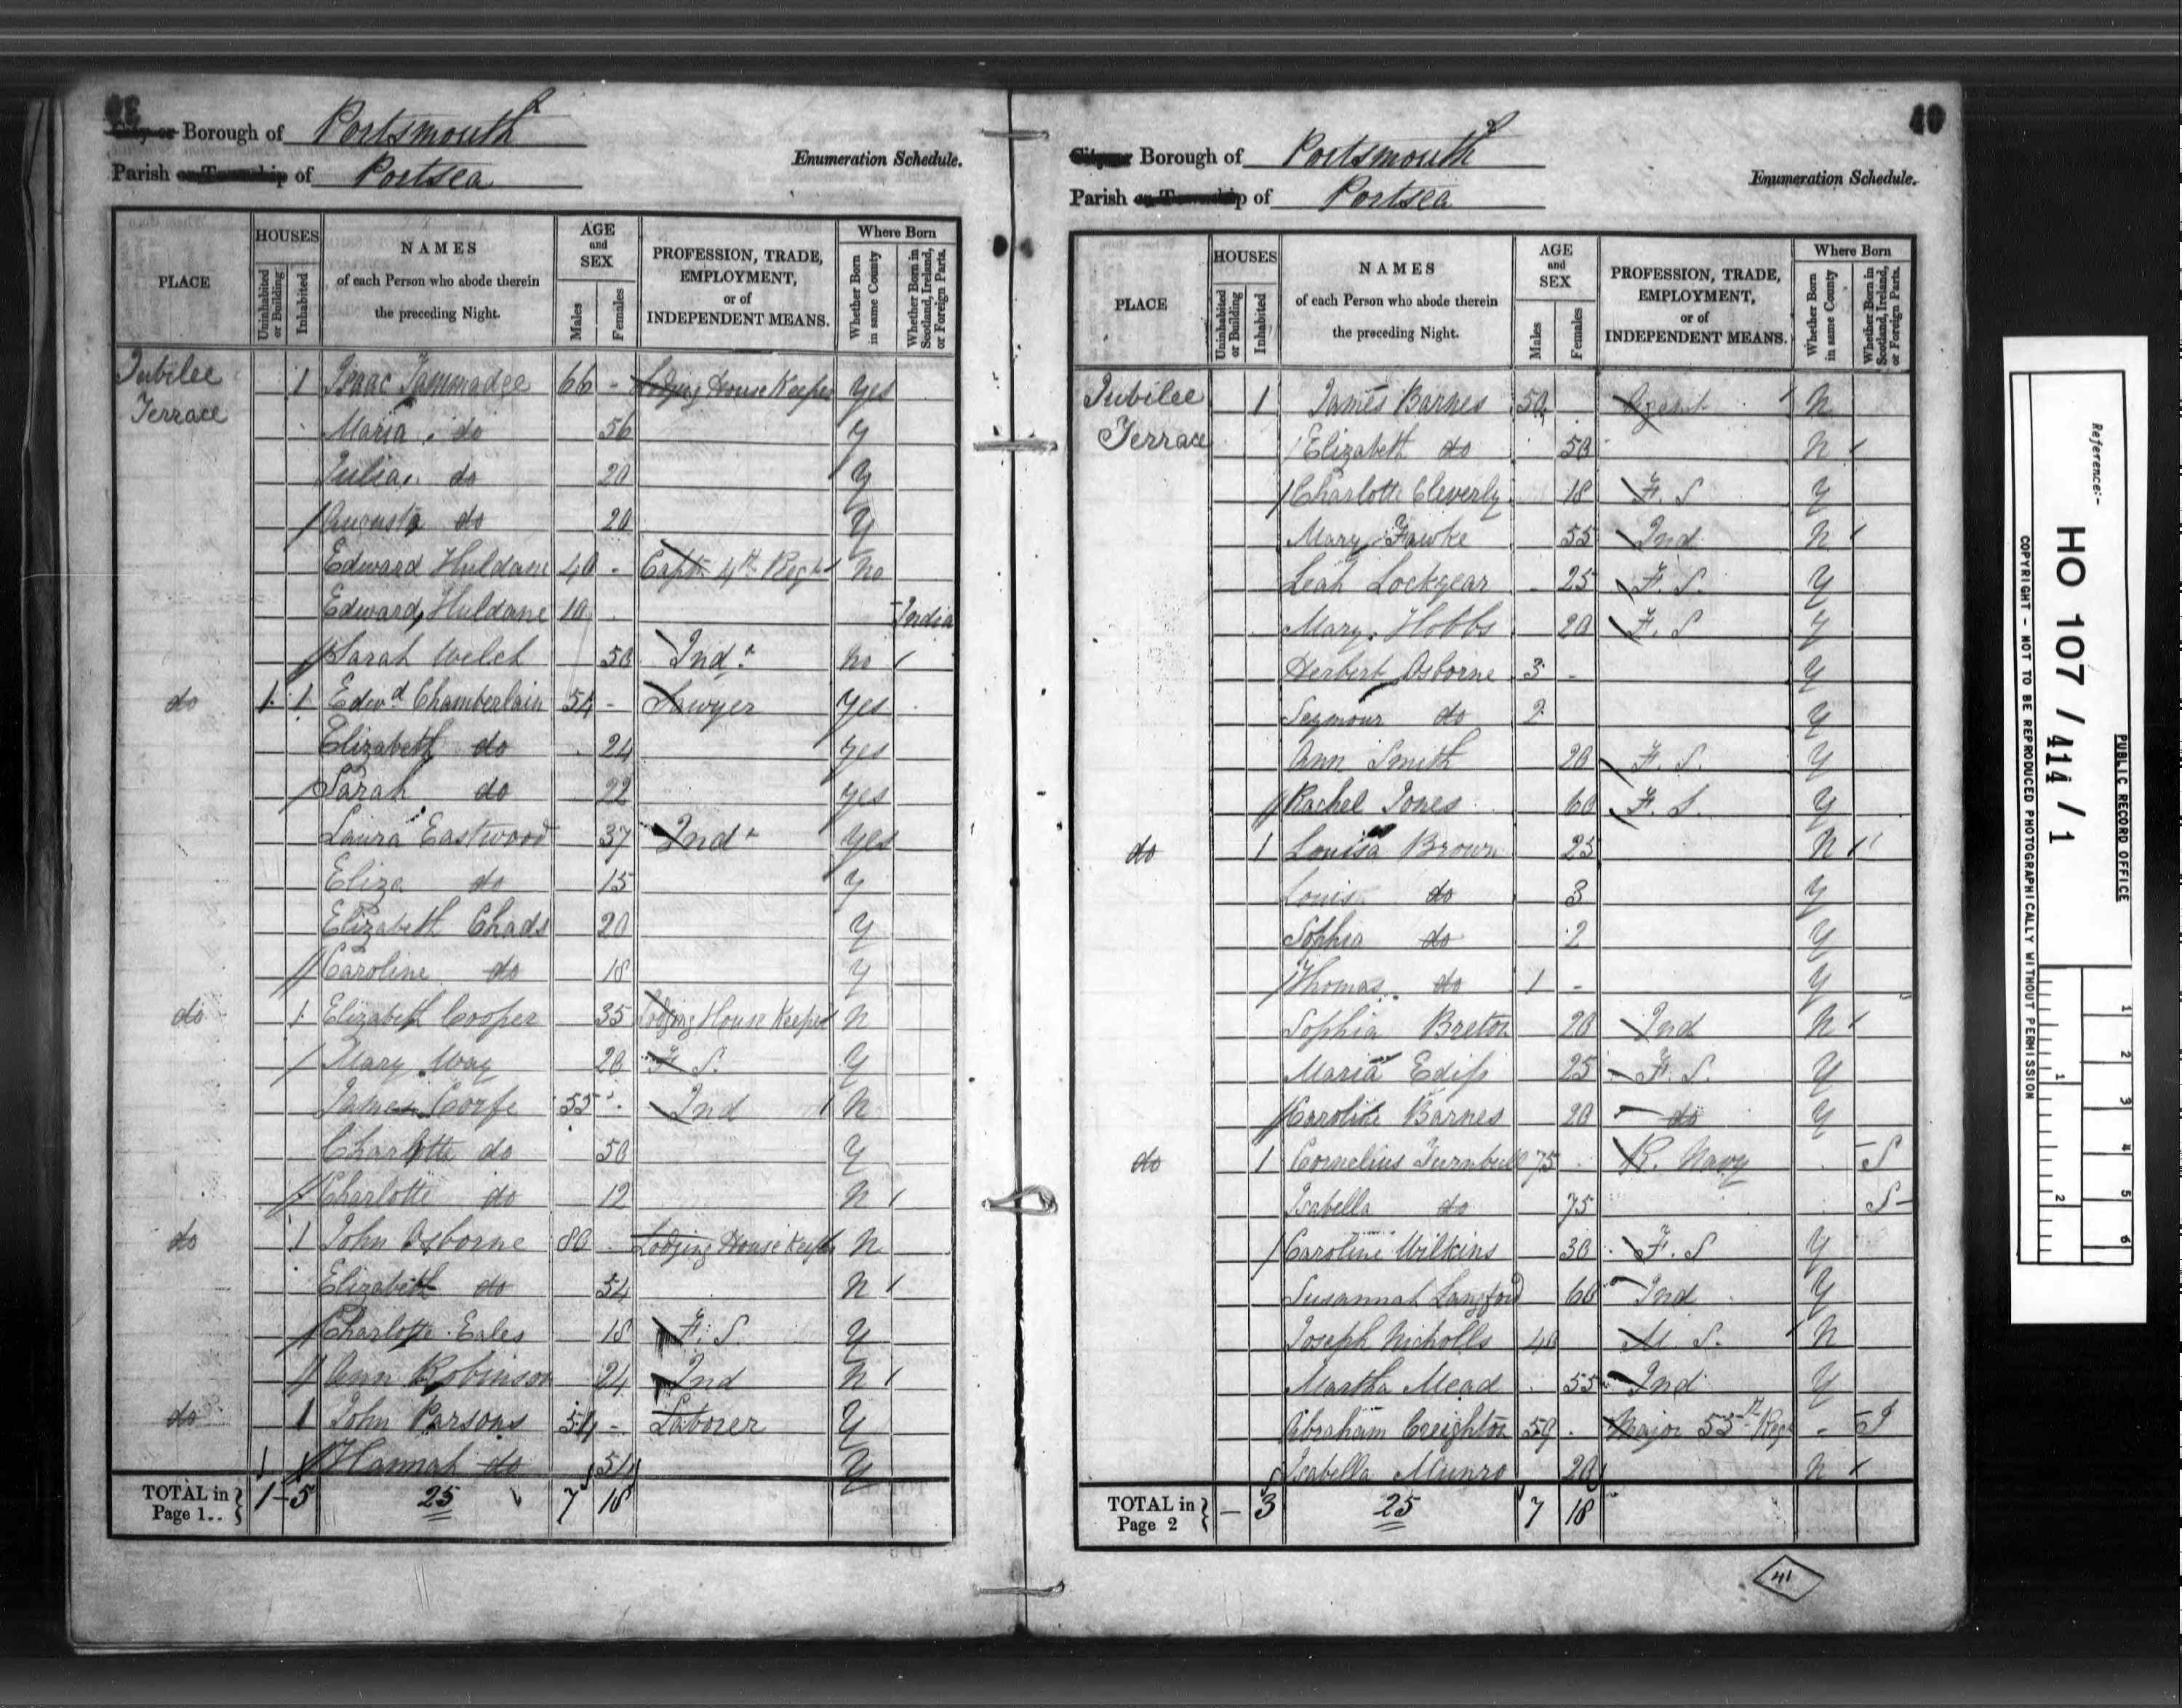 City or Borough of Portsmouth
Parish or Township of Portsea
Enumeration Schedule.
PLACE
HOUSES
Uninhabited or Building
Inhabited
NAMES
of each Person who abode therein
the preceding Night.
AGE
and
SEX
Males
Females
PROFESSION, TRADE,
EMPLOYMENT,
or of
INDEPENDENT MEANS.
Where Born
Whether Born in same County
Whether Born in Scotland, Ireland, or Foreign Parts.
Jubilee 1 Isaac 66 - Lodging House Keeper Yes
Terrace
Maria do 56 Y
Julia do 20 Y
Augusta do 20 Y
Edward Huldane 40 - Captn 4th Regt No
Edward Huldane 10 India
Sarah Welch 50 Ind. No
do 1 1 Edwd Chamberlain 54 - Sawyer Yes
Elizabeth do 24 Yes
Sarah do 22 Yes
Laura Eastwood 37 Ind Yes
Eliza do 15 Y
Elizabeth Chads 20 Y
Caroline do 18 Y
do 1 Elizabeth Cooper 35 Lodging House Keeper N
Mary Way 20 F S. Y
James Corfe 55 Ind N
Charlotte do 50 Y
Charlotte do 12 N
do 1 John Osborne 80 Lodging House Keeper N
Elizabeth do 54 N
Charlotte Eales 18 F. S. Y
Ann Robinson 24 Ind N
do 1 John Parsons 54 - Laborer Y
Hannah do 54 Y
TOTAL in Page 1.. 1 - 5 25 7 18
40
City or Borough of Portsmouth
Parish or Township of Portsea
Enumeration Schedule.
PLACE
HOUSES
Uninhabited or Building
Inhabited
NAMES
of each Person who abode therein
the preceding Night.
AGE
and
SEX
Males
Females
PROFESSION, TRADE,
EMPLOYMENT,
or of
INDEPENDENT MEANS.
Where Born
Whether Born in same County
Whether Born in Scotland, Ireland, or Foreign Parts.
Jubilee 1 James Barnes 50 Agent N
Terrace Elizabeth do 50 N
Charlotte Cleverly 18 F. S Y
Mary Fawke 55 Ind N
Leah Lockyear 25 F. S. Y
Mary Hobbs 20 F. S Y
Herbert Osborne 3 - Y
Seymour do 2 Y
Ann Smith 20 F. S. Y
Rachel Jones 60 F. S. Y
do 1 Louisa Brown 25 N
Louis do 3 Y
Sophia do 2 Y
Thomas do 1 - Y
Sophia Breton 20 Ind N
Maria Ediss 25 F. S. Y
Caroline Barnes 20 do Y
do 1 Cornelius Turnbull 75 R. Navy S
Isabella do 75 S
Caroline Wilkins 30 F. S Y
Susannah Langford 60 Ind Y
Joseph Nicholls 40 M. S. N
Martha Mead 55 Ind Y
Abraham Creighton 59 Major 55th Regt - I
Isabella Munro 20 N
TOTAL in Page 2 - 3 25 7 18
41
Reference:-
HO 107 / 414 / 1
PUBLIC RECORD OFFICE
COPYRIGHT - NOT TO BE REPRODUCED PHOTOGRAPHICALLY WITHOUT PERMISSION
1 2 3 4 5 6
1 2